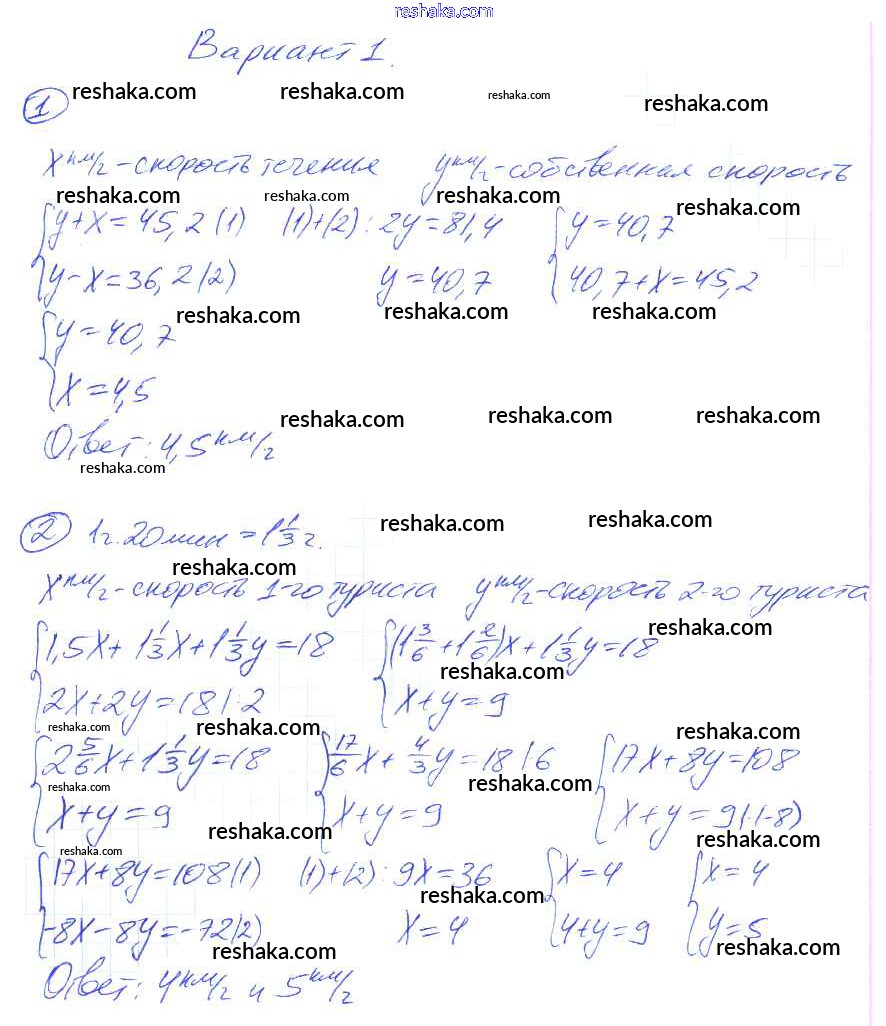 reshaka.com
Вариант 1.
reshaka.com reshaka.com reshaka.com reshaka.com
1
x км/г - скорость течения y км/г - собственная скорость
reshaka.com reshaka.com reshaka.com
{ y+x=45,2 (1) (1)+(2): 2y=81,4 { y=40,7
{ y-x=36,2 (2) y=40,7 { 40,7+x=45,2
reshaka.com reshaka.com reshaka.com
{ y=40,7
{ x=4,5
reshaka.com reshaka.com reshaka.com
Ответ: 4,5 км/г
reshaka.com
2 1г.20мин = 1 1/3 г. reshaka.com reshaka.com
reshaka.com
x км/г - скорость 1-го туриста y км/г - скорость 2-го туриста
reshaka.com
{ 1,5x + 1 1/3 x + 1 1/3 y = 18 { (1 3/6 + 1 2/6)x + 1 1/3 y = 18
reshaka.com
{ 2x+2y=18 |:2 { x+y=9
reshaka.com reshaka.com reshaka.com
{ 2 5/6 x + 1 1/3 y = 18 { 17/6 x + 4/3 y = 18 |·6 { 17x+8y=108
reshaka.com reshaka.com
{ x+y=9 { x+y=9 { x+y=9 |·(-8)
reshaka.com reshaka.com
reshaka.com
{ 17x+8y=108 (1) (1)+(2): 9x=36 { x=4 { x=4
reshaka.com
{ -8x-8y=-72 (2) x=4 { 4+y=9 { y=5
reshaka.com reshaka.com
Ответ: 4 км/г и 5 км/г